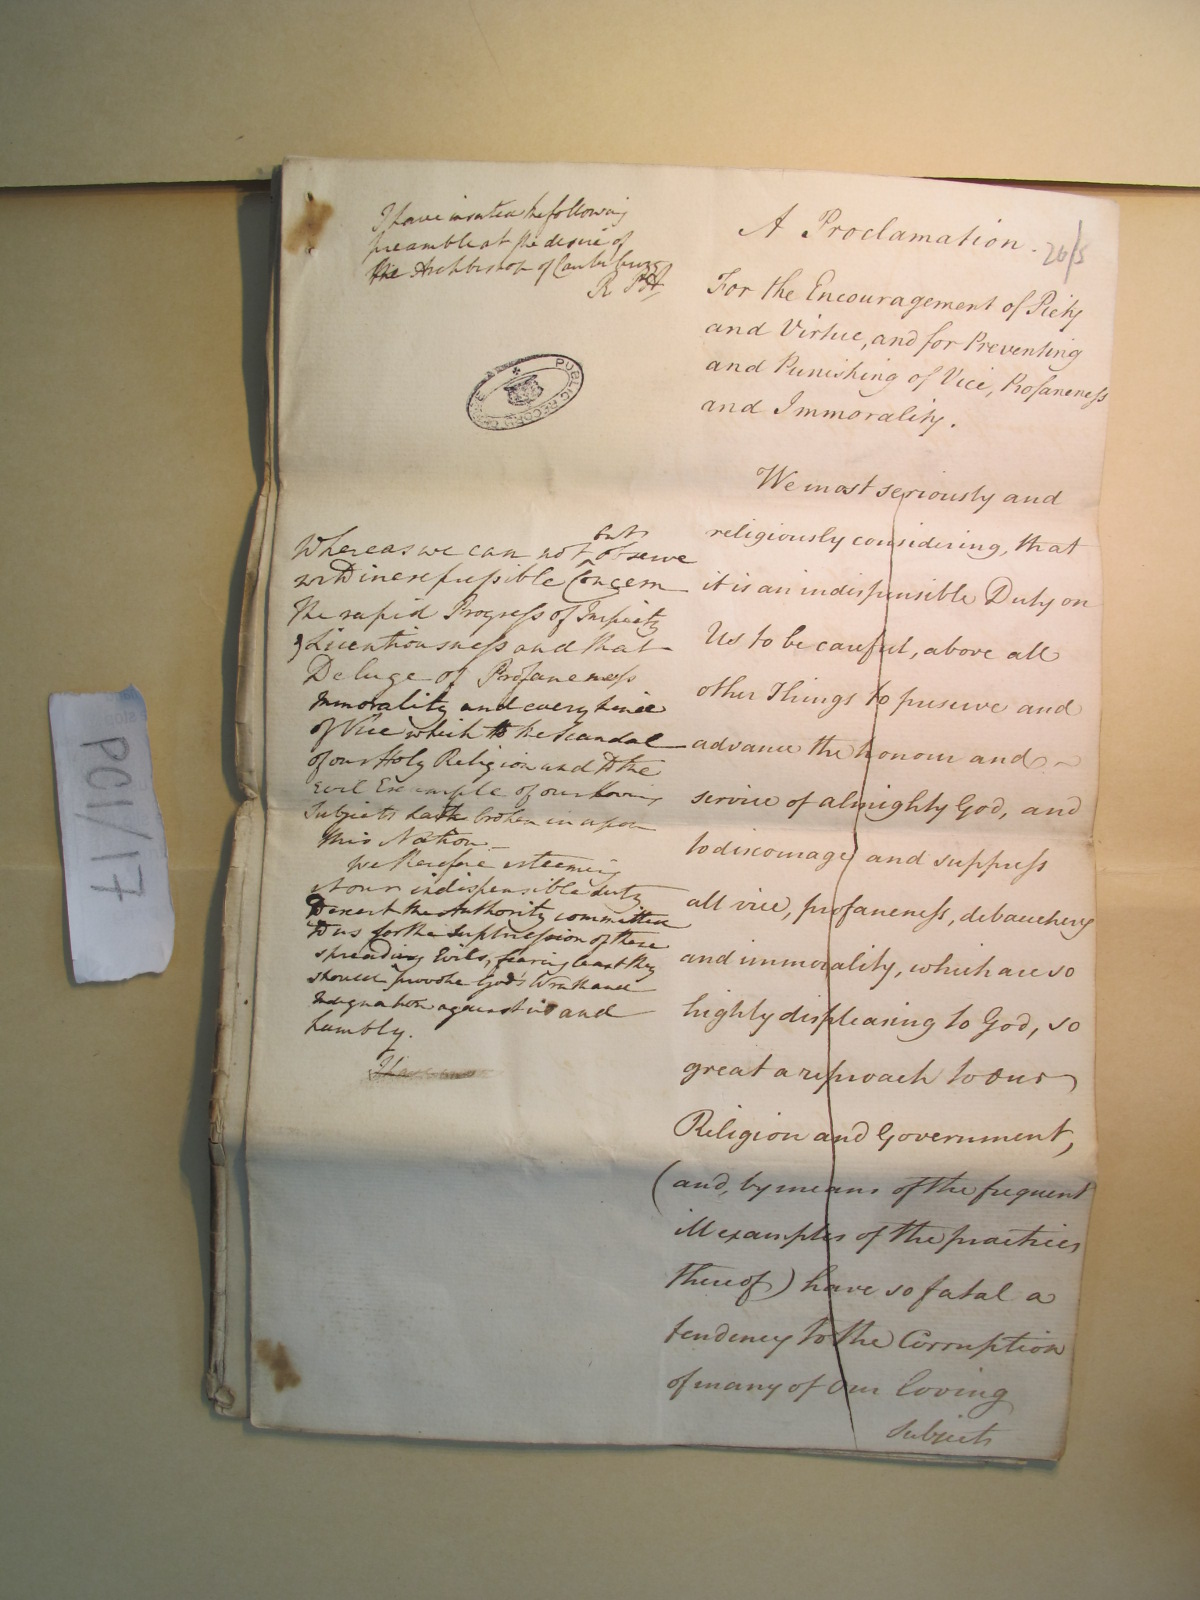 I have inserted the following
preamble at the desire of
the Archbishop of Canterbury
R
PUBLIC RECORD OFFICE
Whereas we can not but observe
with inexpressible Concern
the rapid Progress of Impiety
& Licentiousness and that
Deluge of Profaneness
Immorality and every kind
of Vice which to the Scandal
of our Holy Religion and to the
evil Example of our loving
Subjects hath broken in upon
this Nation.
We therefore esteeming
it our indispensible duty
to exert the Authority committed
to us for the suppression of these
spreading Evils, fearing least they
should provoke God's Wrath and
Indignation against us and
humbly.
A Proclamation.
26/5
For the Encouragement of Piety
and Virtue, and for Preventing
and Punishing of Vice, Profaneness
and Immorality.
We most seriously and
religiously considering, that
it is an indispensible Duty on
Us to be careful, above all
other Things to preserve and
advance the honour and
service of almighty God, and
to discourage and suppress
all vice, profaneness, debauchery
and immorality, which are so
highly displeasing to God, so
great a reproach to Our
Religion and Government,
(and, by means of the frequent
ill examples of the practices
thereof) have so fatal a
tendency to the Corruption
of many of Our loving
Subjects
PC1/17